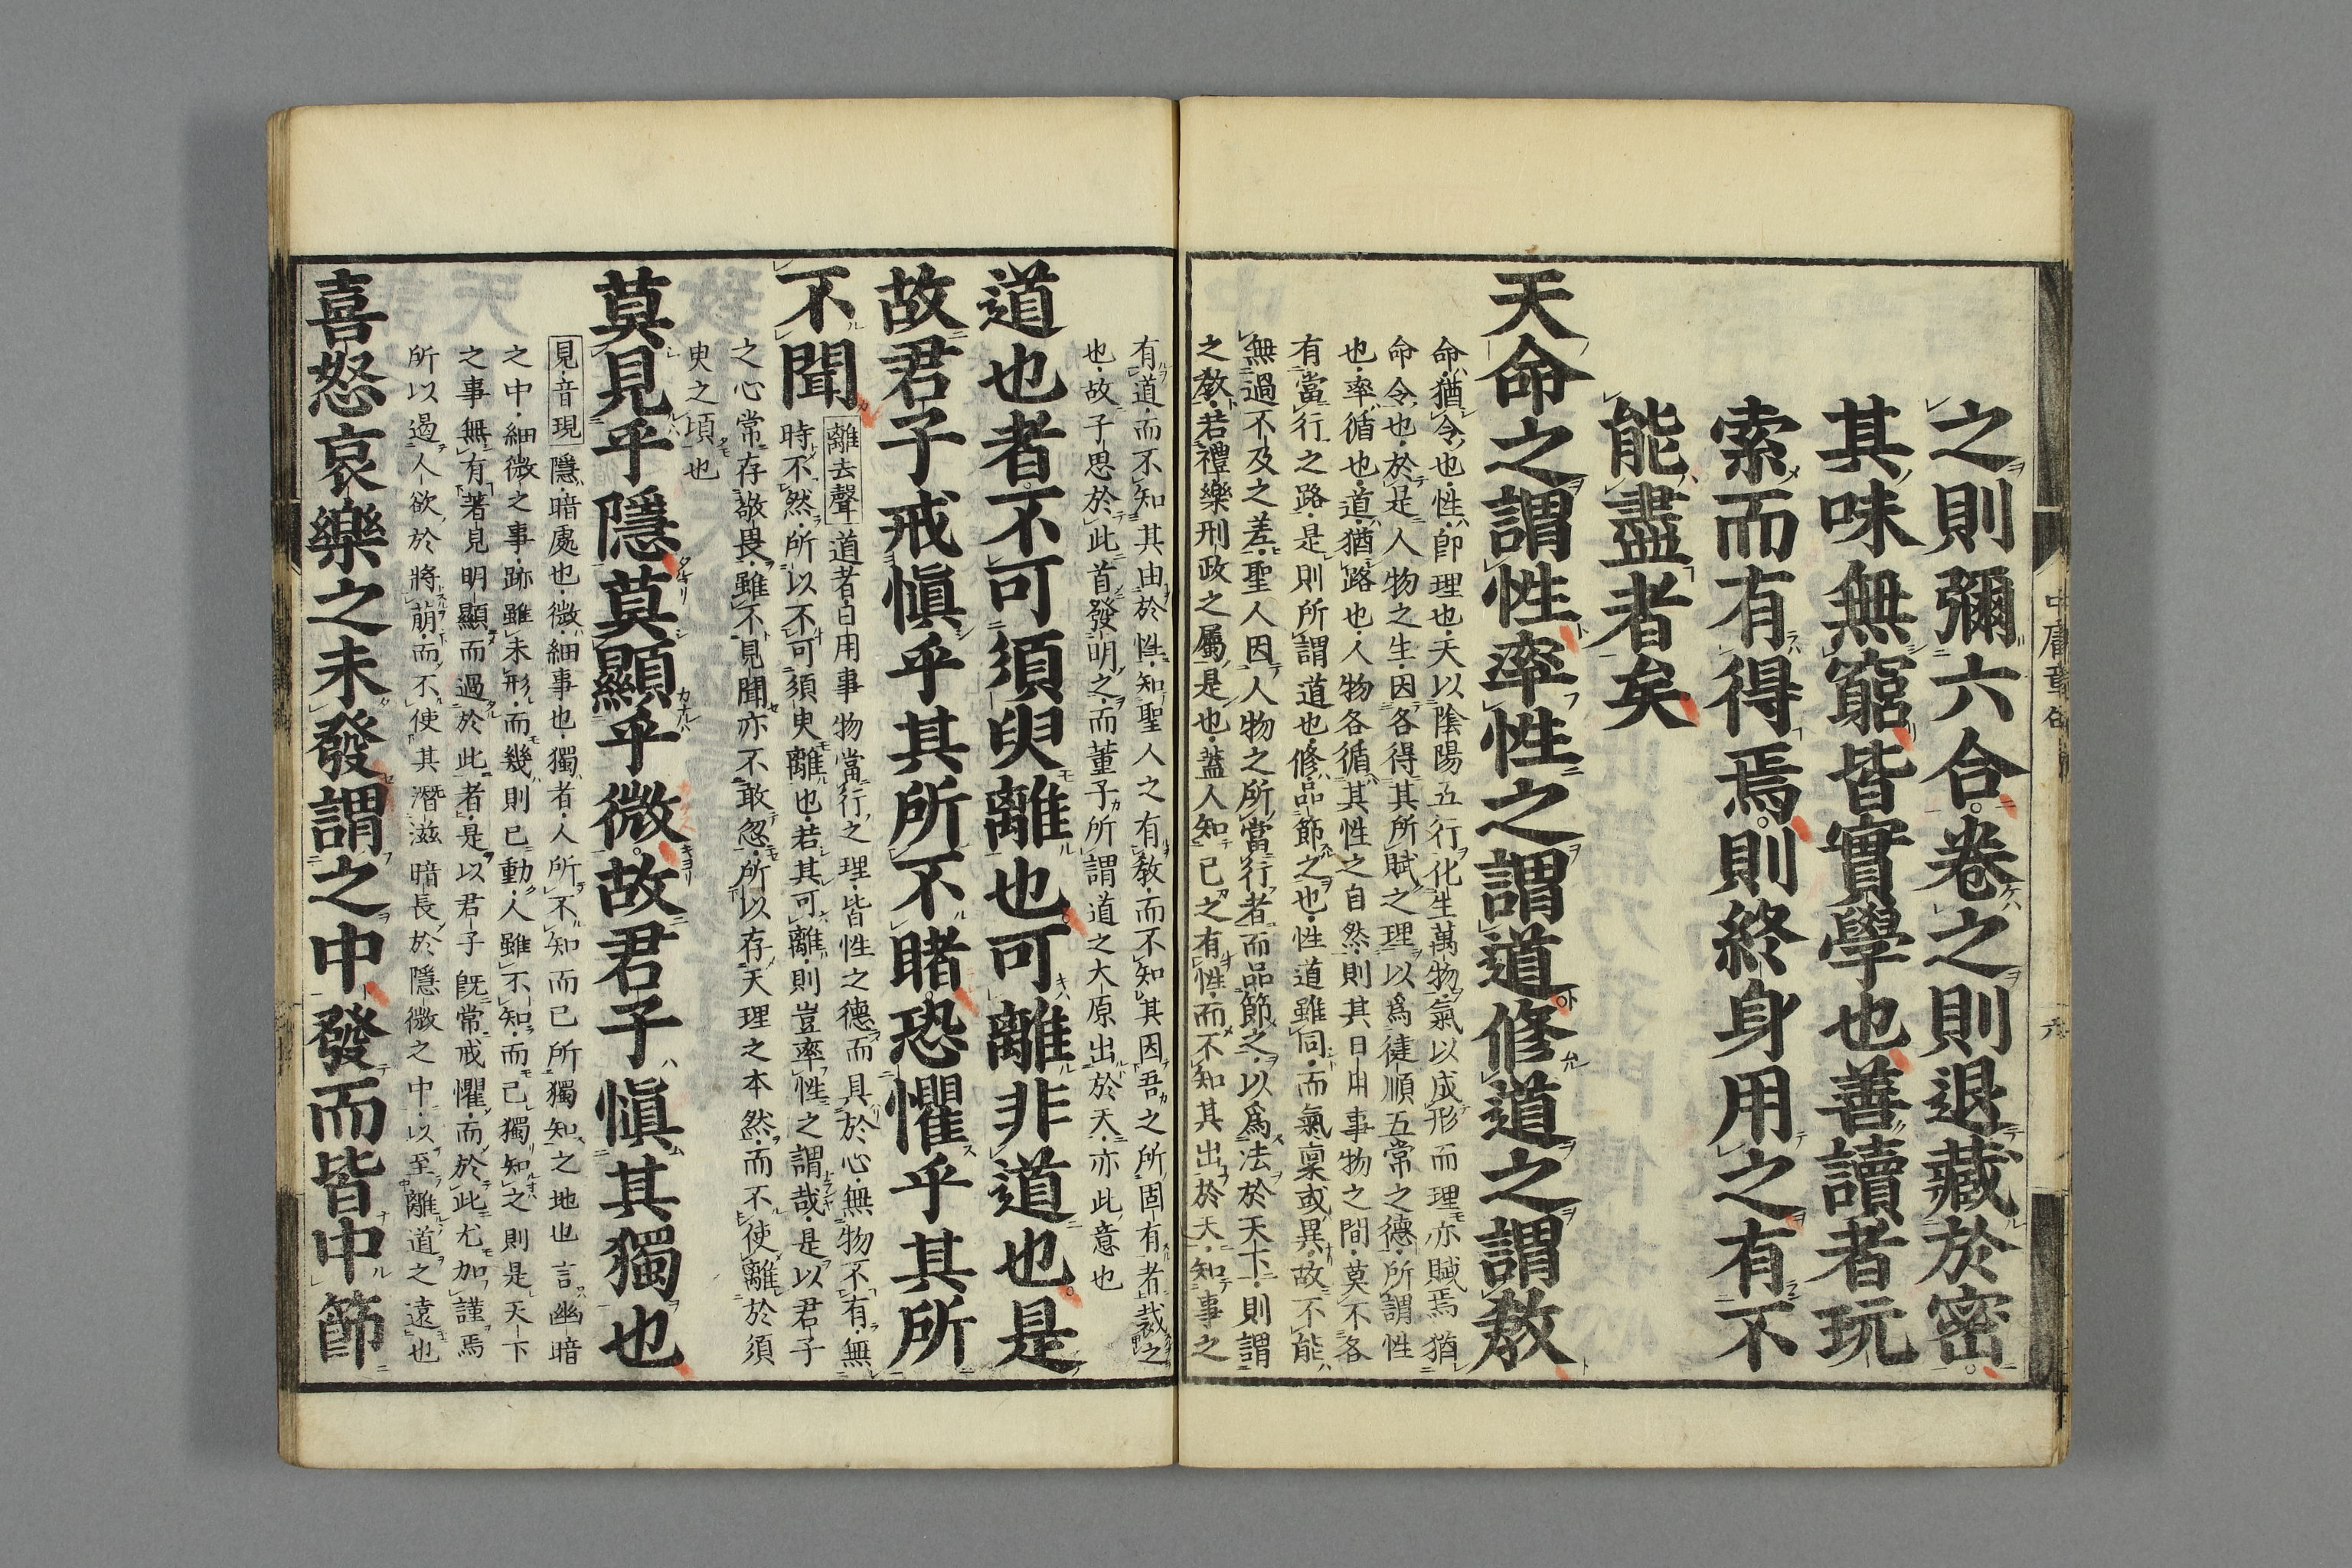 之則彌六合。卷之則退藏於密。
其味無窮皆實學也善讀者玩
索而有得焉。則終身用之有不
能盡者矣
天命之謂性率性之謂道修道之謂教
命猶令也性卽理也天以陰陽五行化生萬物氣以成形而理亦賦焉猶
命令也於是人物之生因各得其所賦之理以爲徤順五常之德所謂性
也率循也道猶路也人物各循其性之自然則其日用事物之間莫不各
有當行之路是則所謂道也修品節之也性道雖同而氣稟或異故不能
無過不及之差聖人因人物之所當行者而品節之以爲法於天下則謂
之教若禮樂刑政之屬是也蓋人知己之有性而不知其出於天知事之
中庸章句
有道而不知其由於性知聖人之有教而不知其因吾之所固有者裁之
也故子思於此首發明之而董子所謂道之大原出於天亦此意也
道也者不可須臾離也。可離非道也。是
故君子戒愼乎其所不睹。恐懼乎其所
不聞
離去聲 道者日用事物當行之理皆性之德而具於心無物不有無
時不然所以不可須臾離也若其可離則豈率性之謂哉是以君子
之心常存敬畏雖不見聞亦不敢忽所以存天理之本然而不使離於須
臾之頃也
莫見乎隱莫顯乎微。故君子愼其獨也
見音現 隱暗處也微細事也獨者人所不知而已所獨知之地也言幽暗
之中細微之事跡雖未形而幾則已動人雖不知而已獨知之則是天下
之事無有著見明顯而過於此者是以君子旣常戒懼而於此尤加謹焉
所以遏人欲於將萌而不使其潛滋暗長於隱微之中以至離道之遠也
喜怒哀樂之未發謂之中發而皆中節